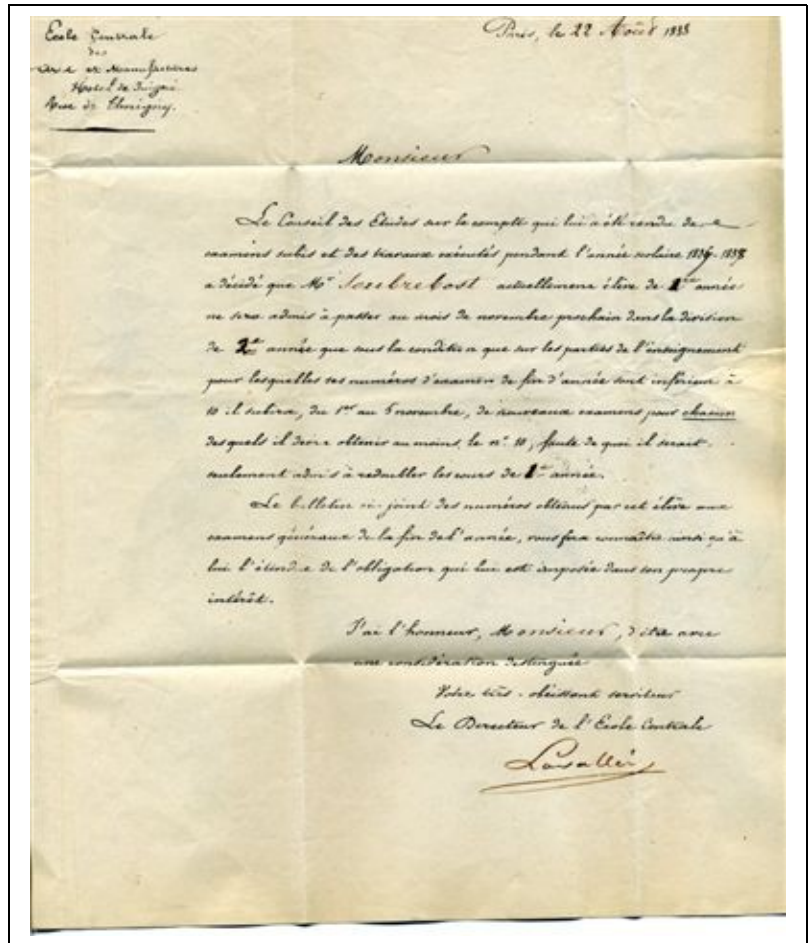 Ecole Centrale
des
Arts et Manufactures
Hôtel de Juigné
Rue de Thorigny.
Paris, le 22 Août 1838
Monsieur
Le Conseil des Etudes sur le compte qui lui a été rendu des
examens subis et des travaux exécutés pendant l'année scolaire 1837-1838
a décidé que Mr Soubrebost actuellement élève de 1re année
ne sera admis à passer au mois de novembre prochain dans la division
de 2e année que sous la condition que sur les parties de l'enseignement
pour lesquelles ses numéros d'examen de fin d'année sont inférieur à
10 il subira, du 1er au 5 novembre, de nouveaux examens pour chacun
desquels il devra obtenir au moins le n° 10, faute de quoi il serait
seulement admis à redoubler les cours de 1re année.
Le bulletin ci-joint des numéros obtenus par cet élève aux
examens généraux de la fin de l'année, vous fera connaître ainsi qu'à
lui l'étendue de l'obligation qui lui est imposée dans son propre
intérêt.
J'ai l'honneur, Monsieur, d'être avec
une considération distinguée
Votre très-obéissant serviteur
Le Directeur de l'Ecole Centrale
Lavallée